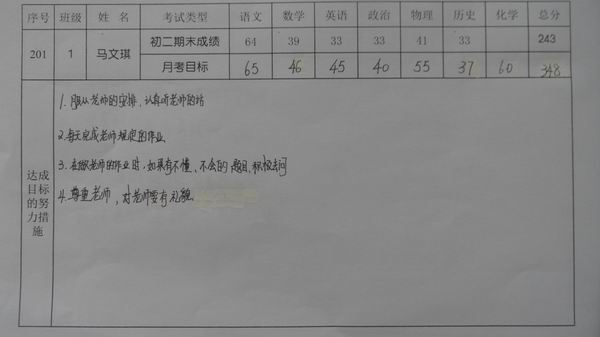 序号 班级 姓名 考试类型 语文 数学 英语 政治 物理 历史 化学 总分
201 1 马文琪 初二期末成绩 64 39 33 33 41 33 243
月考目标 65 46 45 40 55 37 60 348
达成目标的努力措施
1.服从老师的安排,认真听老师的话
2.每天完成老师规定的作业
3.在做老师的作业时,如果有不懂、不会的题目,积极去问
4.尊重老师,对老师要有礼貌.